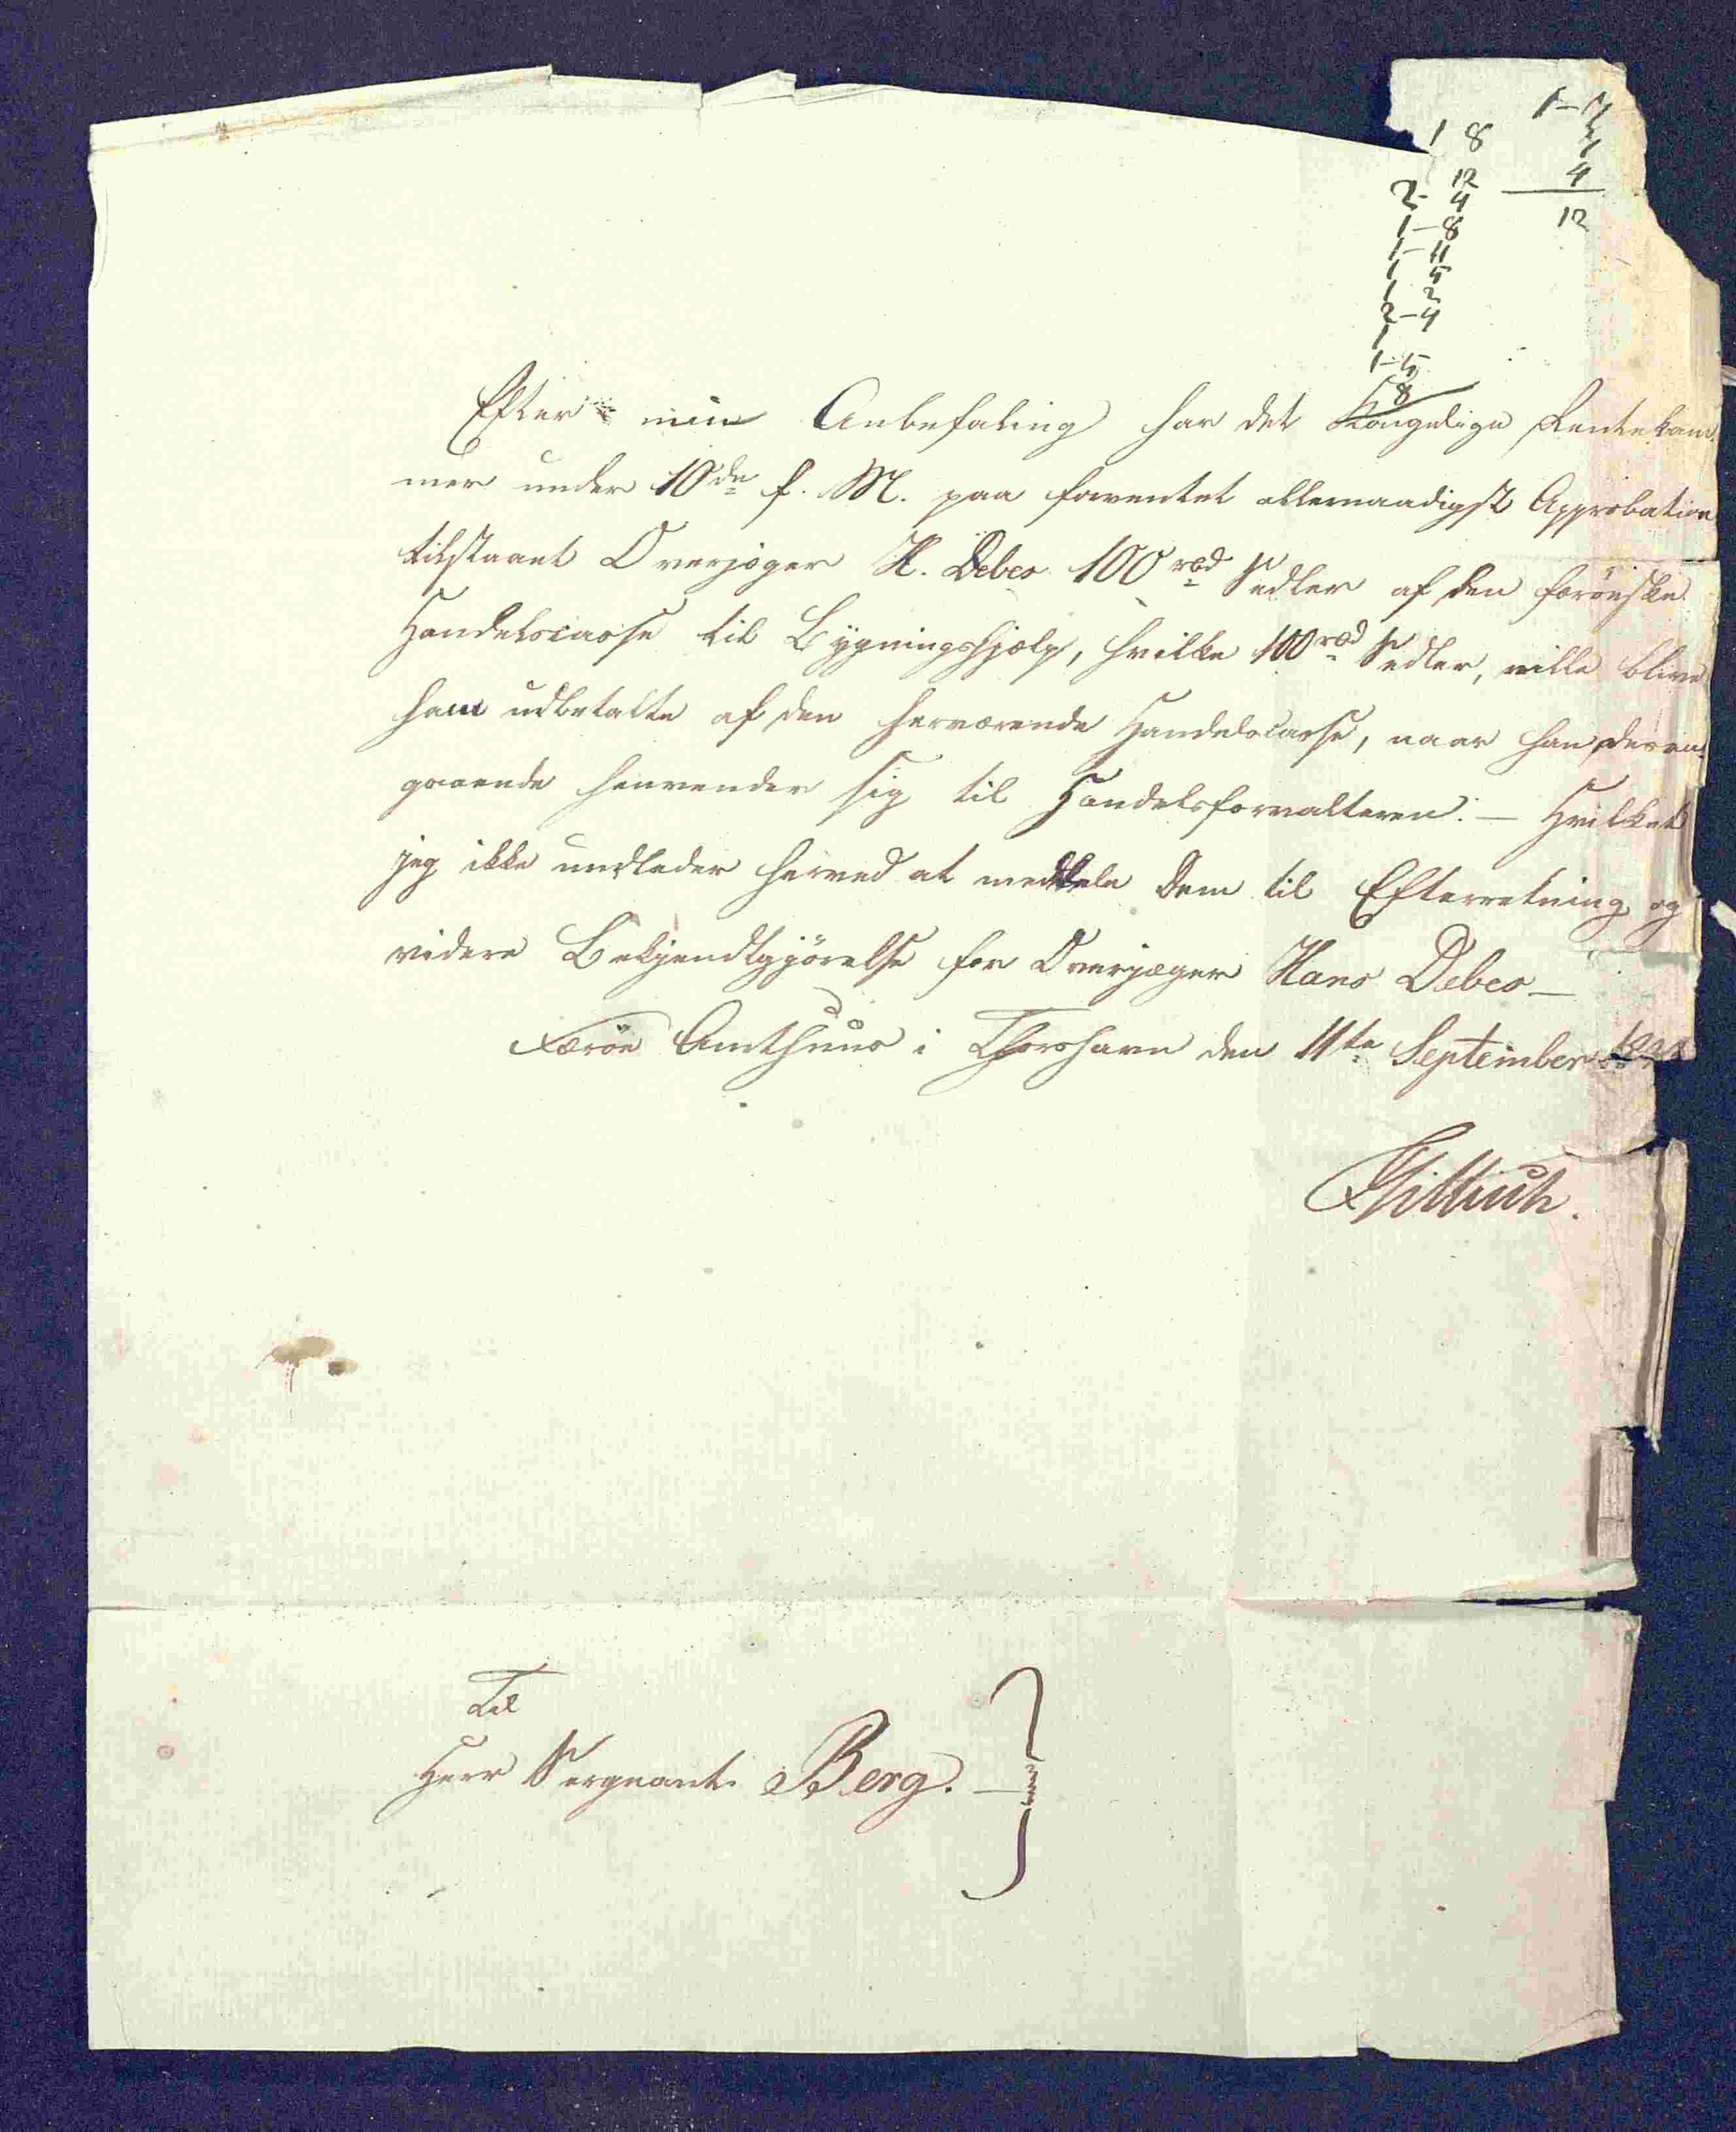 1-7
1 8
4
12
12
2- 4
1-8
1-11
1 5
1 2
2-4
1
1-5
8
Efter min Anbefaling har det Kongelige Rentekam
mer under 10de f. M. paa forventet allernaadigst Approbation
tilstaaet Overjæger H. Debes 100 rbd Sedler af den færöeske
Handelscasse til Bygningshjelp, hvilke 100 rbd Sedler, ville blive
ham udbetalte af den herværende Handelscasse, naar han desan
gaaende henvender sig til Handelsforvalteren. — Hvilket
jeg ikke undlader herved at meddele Dem til Efterretning og
videre Bekjendtgjörelse for Overjæger Hans Debes —
Færöe Amthuus i Thorshavn den 11te September
Tillisch.
Til
Herr Sergeant Berg. —